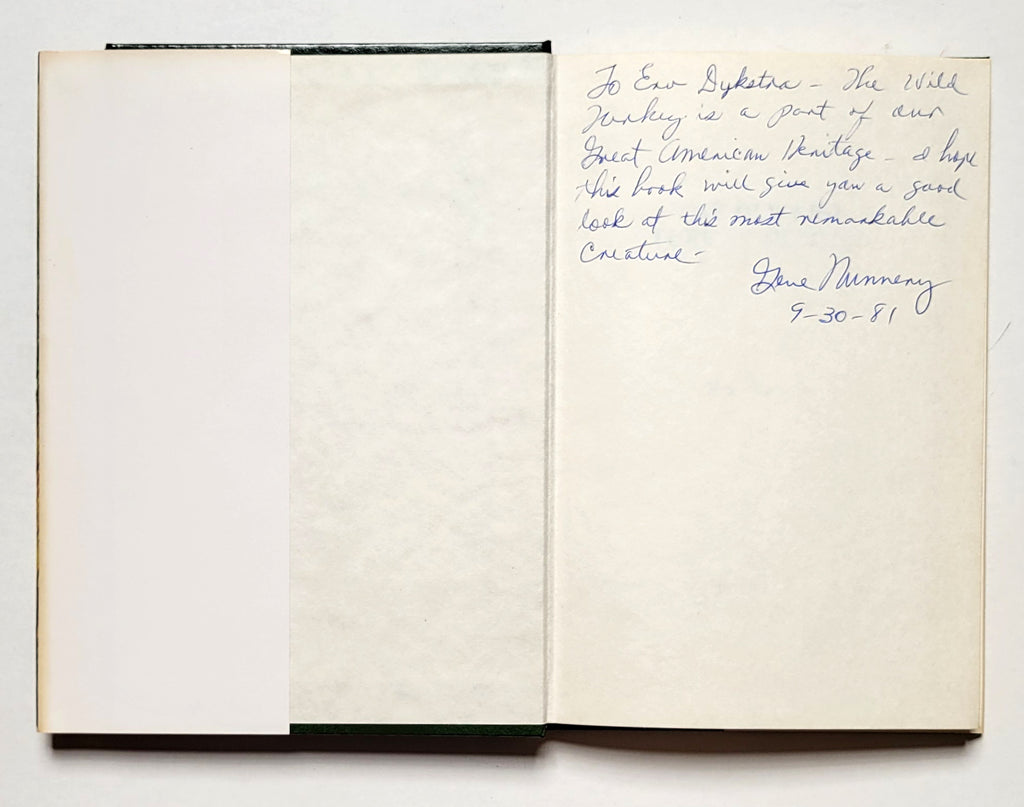 To Erv Dykstra - The Wild
Turkey is a part of our
Great American Heritage - I hope
this book will give you a good
look at this most remarkable
Creature -
Gene Nunnery
9-30-81